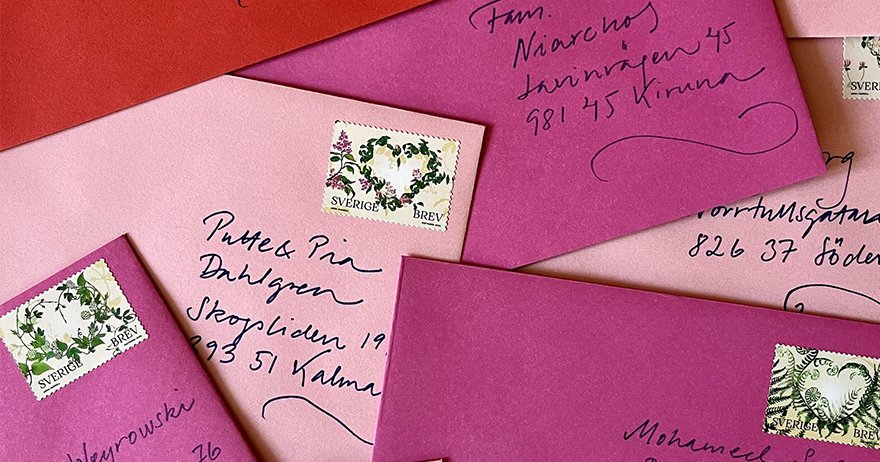 Fam.
Niarchos
Lavinvägen 45
981 45 Kiruna
SVERIGE
SVERIGE BREV
Putte & Pia
Dahlgren
Skogsliden 19
393 51 Kalma
Norrtullsgatan
826 37 Söder
SVERIGE BREV
Weyrowski
76
SVERIGE BREV
Mohamed